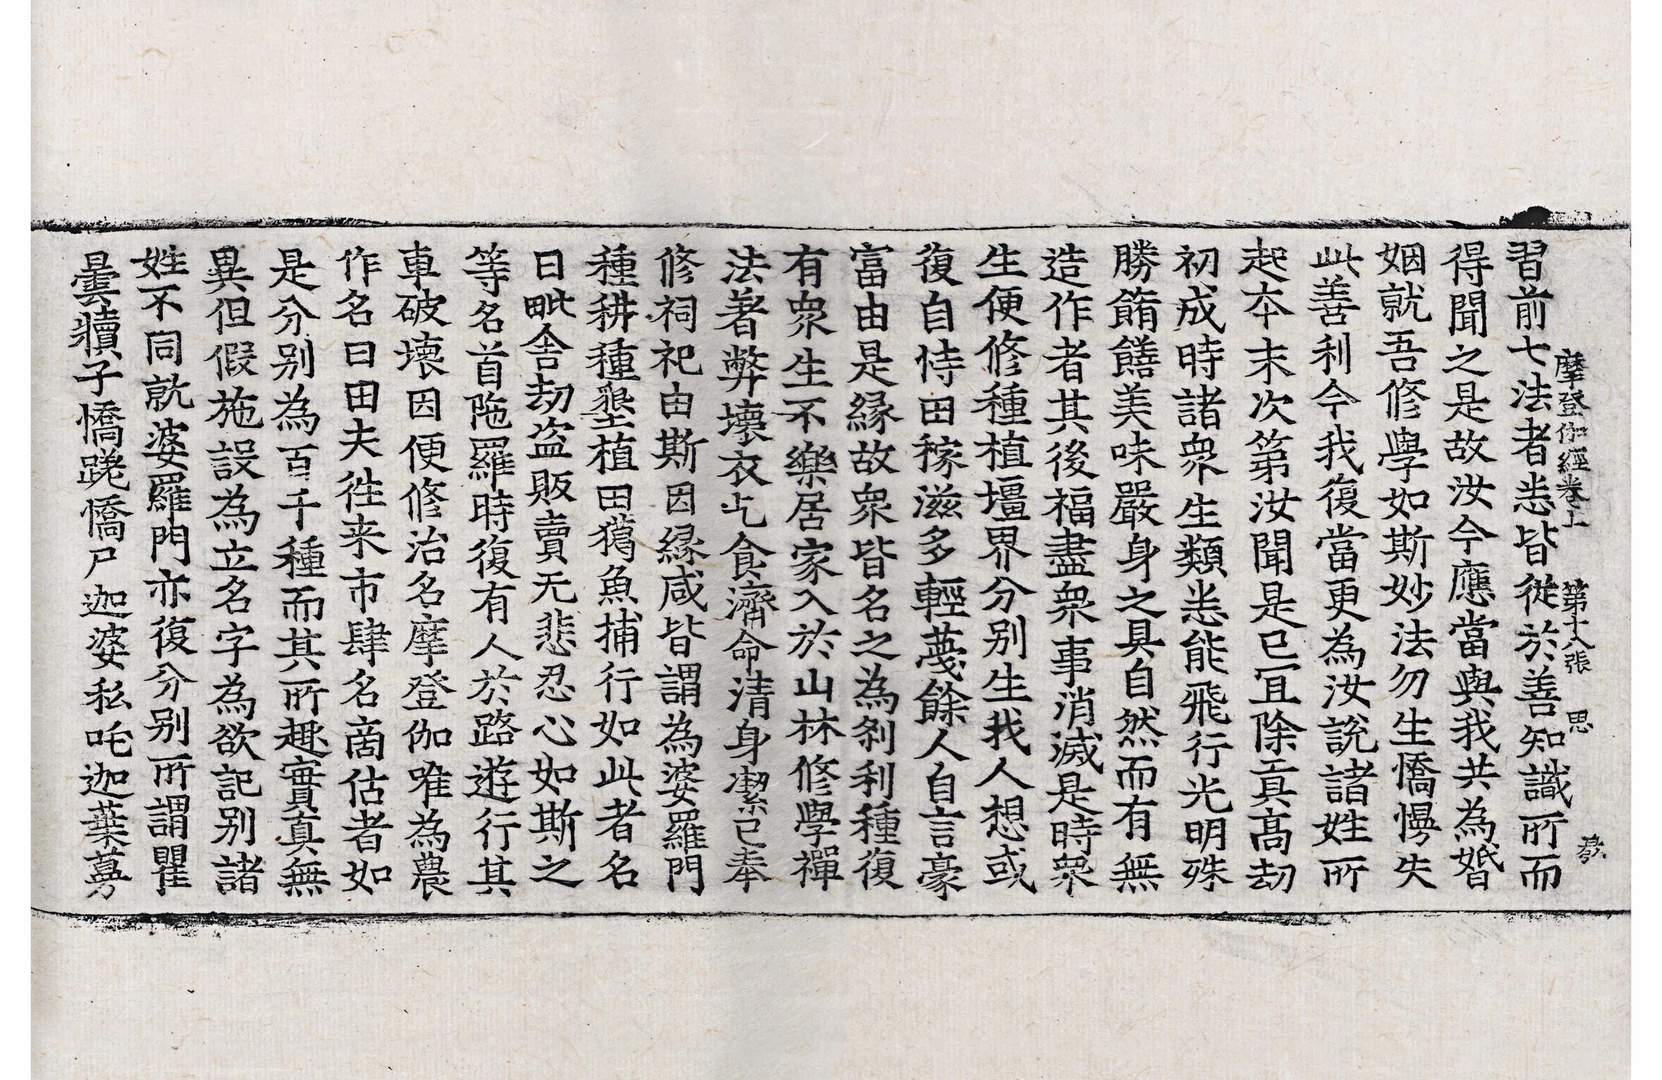 摩登伽經卷上 第十八張 思
習前七法者悉皆從於善知識所而
得聞之是故汝今應當與我共為婚
姻就吾修學如斯妙法勿生憍慢失
此善利今我復當更為汝說諸姓所
起夲末次第汝聞是已冝除真高劫
初成時諸衆生類悉能飛行光明殊
勝餚饍美味嚴身之具自然而有無
造作者其後福盡衆事消滅是時衆
生便修種植壃界分别生我人想或
復自恃田稼滋多輕蔑餘人自言豪
富由是緣故衆皆名之為刹利種復
有衆生不樂居家入於山林修學禪
法著弊壞衣乞食濟命清身潔己奉
修祠祀由斯因緣咸皆謂為婆羅門
種耕種墾植田獦魚捕行如此者名
曰毗舍劫盜販賣无悲忍心如斯之
等名首陁羅時復有人於路遊行其
車破壞因便修治名摩登伽唯為農
作名曰田夫徃来市肆名啇估者如
是分别為百千種而其所趣實真無
異但假施設為立名字為欲記别諸
姓不同就婆羅門亦復分别所謂瞿
曇犢子憍蹉憍尸迦婆私吒迦葉蔓